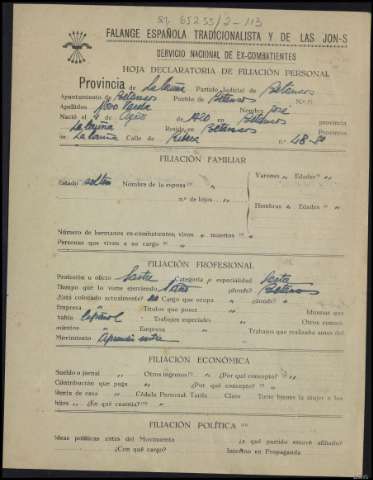 FALANGE ESPAÑOLA TRADICIONALISTA Y DE LAS JON-S
SERVICIO NACIONAL DE EX-COMBATIENTES
HOJA DECLARATORIA DE FILIACIÓN PERSONAL
Provincia de La Coruña Partido Judicial de Betanzos
Ayuntamiento de Betanzos Pueblo de Betanzos N.º
Apellidos Nombre José
Nació el de Agosto de en Betanzos provincia
La Coruña Reside en Betanzos Provincia
La Coruña Calle de Ribera n.º 48-
FILIACIÓN FAMILIAR
Estado soltero Nombre de la esposa Varones Edades
n.º de hijos Hembras Edades
Número de hermanos ex-combatientes vivos muertos
Personas que viven a su cargo
FILIACIÓN PROFESIONAL
Profesión u oficio Sastre Categoría y especialidad
Tiempo que lo viene ejerciendo ¿dónde? Betanzos
¿Está colocado actualmente? no Cargo que ocupa ¿dónde?
Empresa Títulos que posee Idiomas que
habla Español Trabajos especiales Otros conoci-
mientos Empresa Trabajos que realizaba antes del
Movimiento Aprendiz sastre
FILIACIÓN ECONÓMICA
Sueldo o jornal Otros ingresos ¿Por qué concepto?
Contribución que paga ¿Por qué concepto?
Renta de casa Cédula Personal Tarifa Clase Tiene bienes la mujer o los
hijos ¿En qué cuantía?
FILIACIÓN POLÍTICA
Ideas políticas antes del Movimiento ¿a qué partido estuvo afiliado?
¿Con qué cargo? Intervino en Propaganda